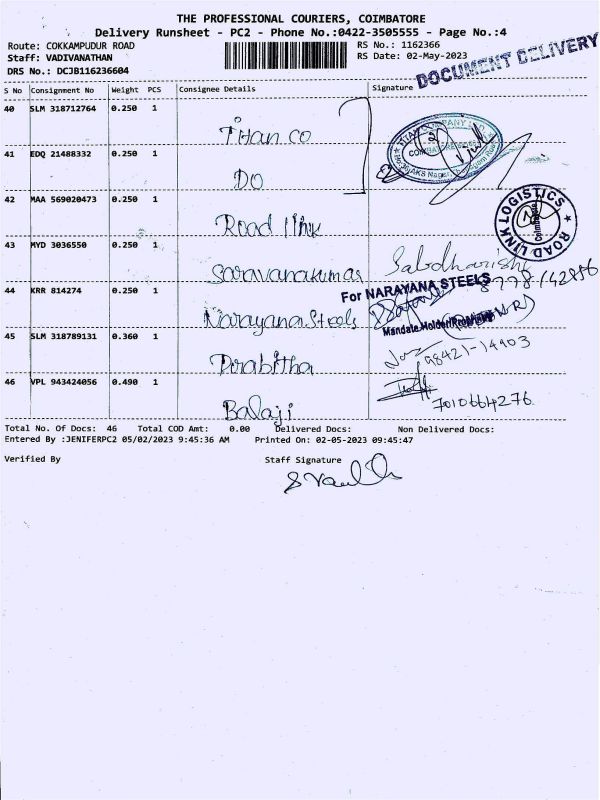 THE PROFESSIONAL COURIERS, COIMBATORE
Delivery Runsheet - PC2 - Phone No.:0422-3505555 - Page No.:4
Route: COKKAMPUDUR ROAD
RS No.: 1162366
Staff: VADIVANATHAN
RS Date: 02-May-2023
DRS No.: DCJB116236604
DOCUMENT DELIVERY
S No Consignment No Weight PCS Consignee Details Signature
40 SLM 318712764 0.250 1
Titan co
41 EDQ 21488332 0.250 1
DO
42 MAA 569020473 0.250 1
Road link
ROAD LINK LOGISTICS
Coimbatore
43 MYD 3036550 0.250 1
Saravanakumar
Sabdharishi
44 KRR 814274 0.250 1
For NARAYANA STEELS
Narayana Steels
Mandate Holder/
45 SLM 318789131 0.360 1
98421-14903
Prabitha
46 VPL 943424056 0.490 1
7010664276
Balaji
Total No. Of Docs: 46 Total COD Amt: 0.00 Delivered Docs: Non Delivered Docs:
Entered By :JENIFERPC2 05/02/2023 9:45:36 AM Printed On: 02-05-2023 09:45:47
Verified By Staff Signature